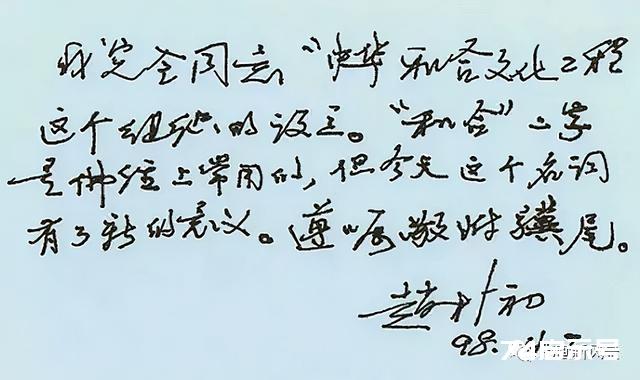 我完全同意“中华和合文化工程
这个组织的设立。“和合”二字
是佛经上常用的，但今天这个名词
有了新的意义。遵嘱敬附骥尾。
赵朴初
98.